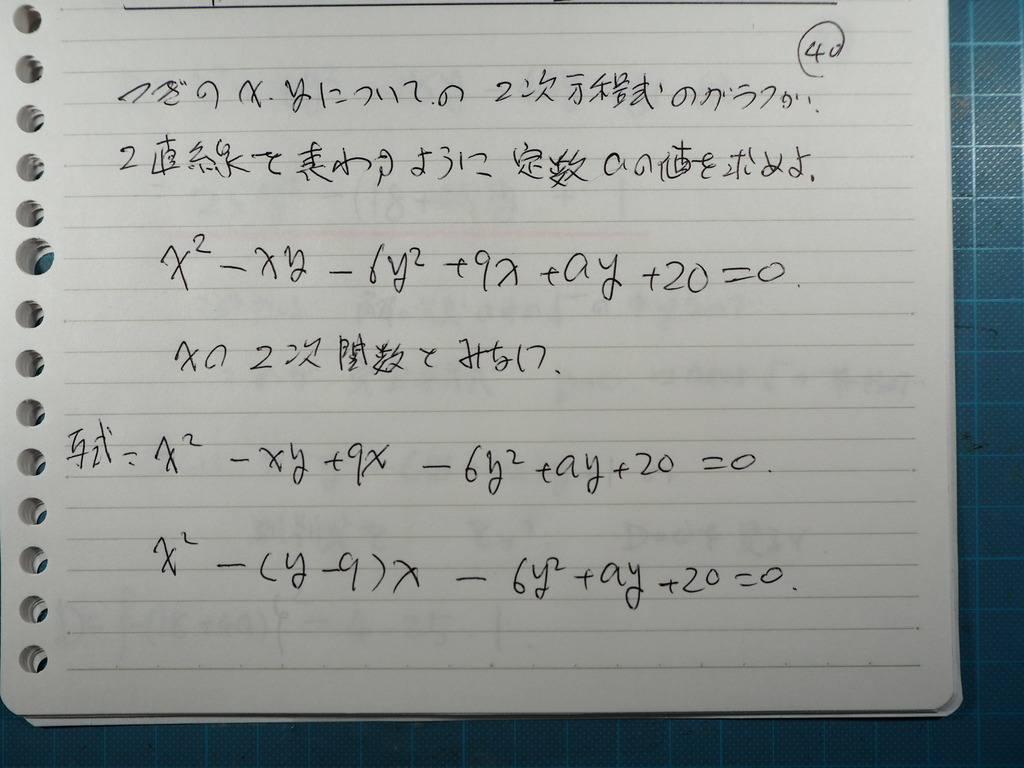 40
つぎの x.yについての 2次方程式のグラフが.
2直線を表わすように 定数 aの値を求めよ.
x² - xy - 6y² + 9x + ay + 20 = 0.
xの 2次関数とみなして.
与式 = x² - xy + 9x - 6y² + ay + 20 = 0.
x² - (y - 9)x - 6y² + ay + 20 = 0.